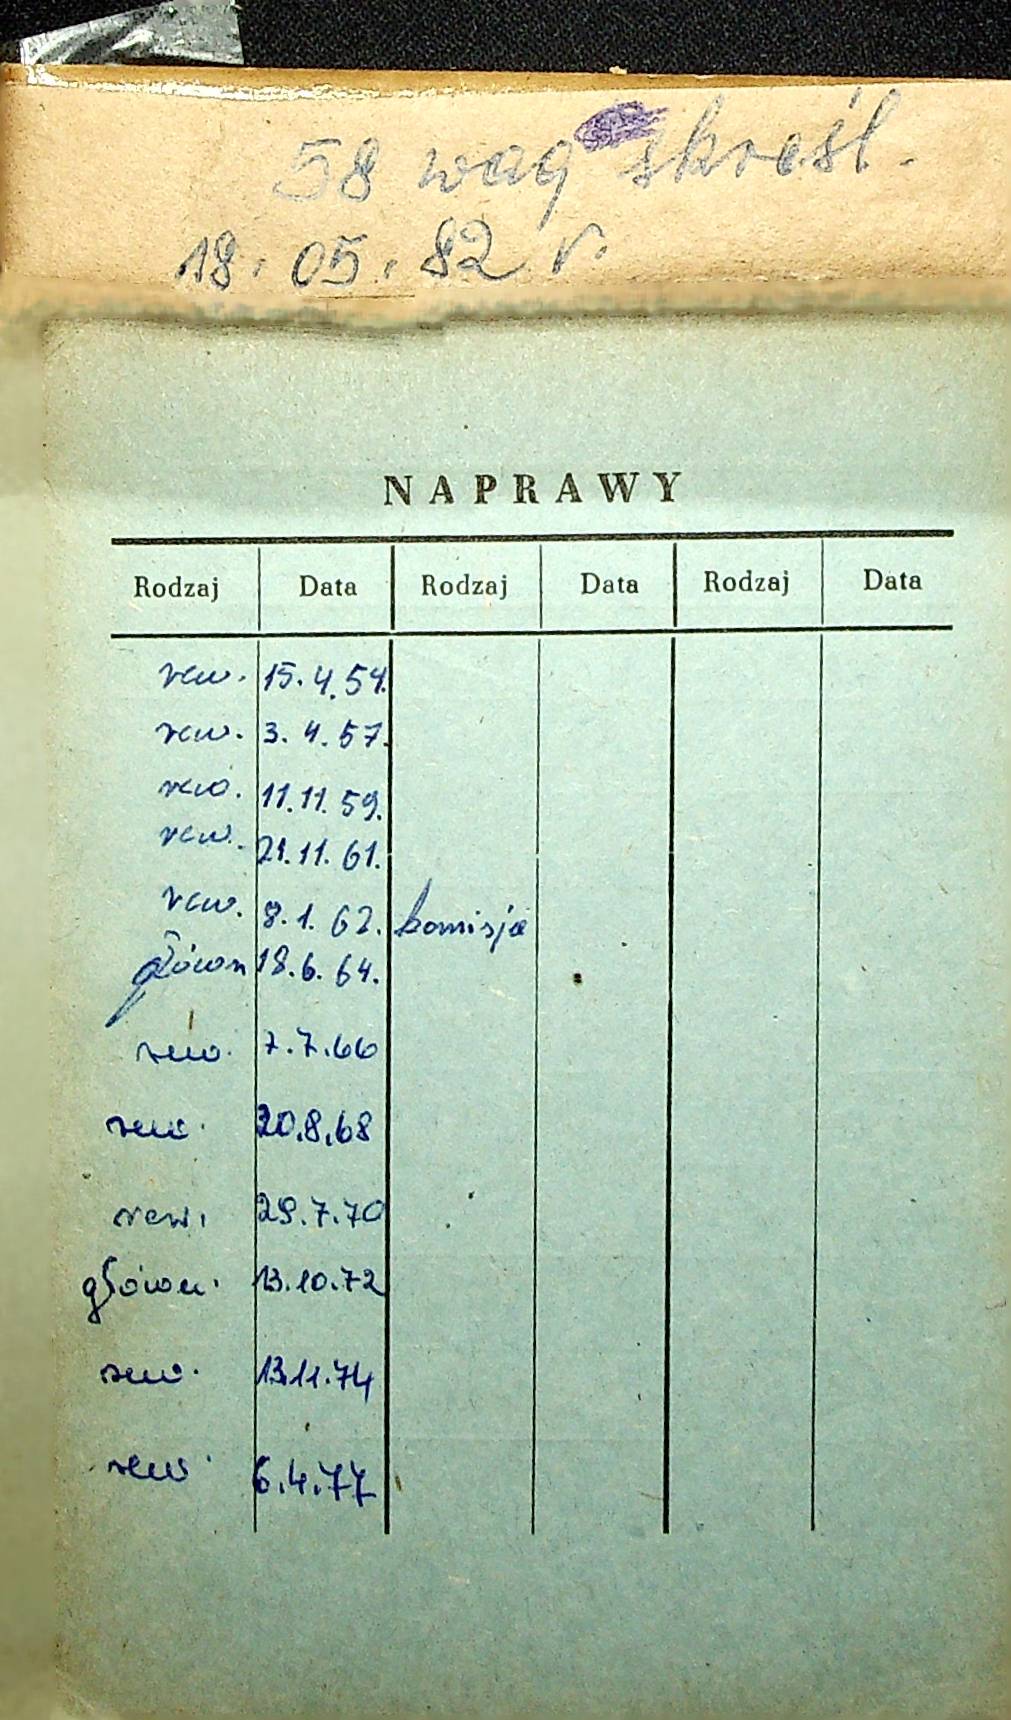 58 wag skreśl.
18. 05. 82 r.
NAPRAWY
Rodzaj Data Rodzaj Data Rodzaj Data
rew. 15.4.54.
rew. 3.4.57.
rew. 11.11.59.
rew. 21.11.61.
rew. 8.1.62. komisja
główn 18.6.64.
rew. 7.7.66
rew. 20.8.68
rew. 29.7.70
główn. 13.10.72
rew. 13.11.74
rew. 6.4.77